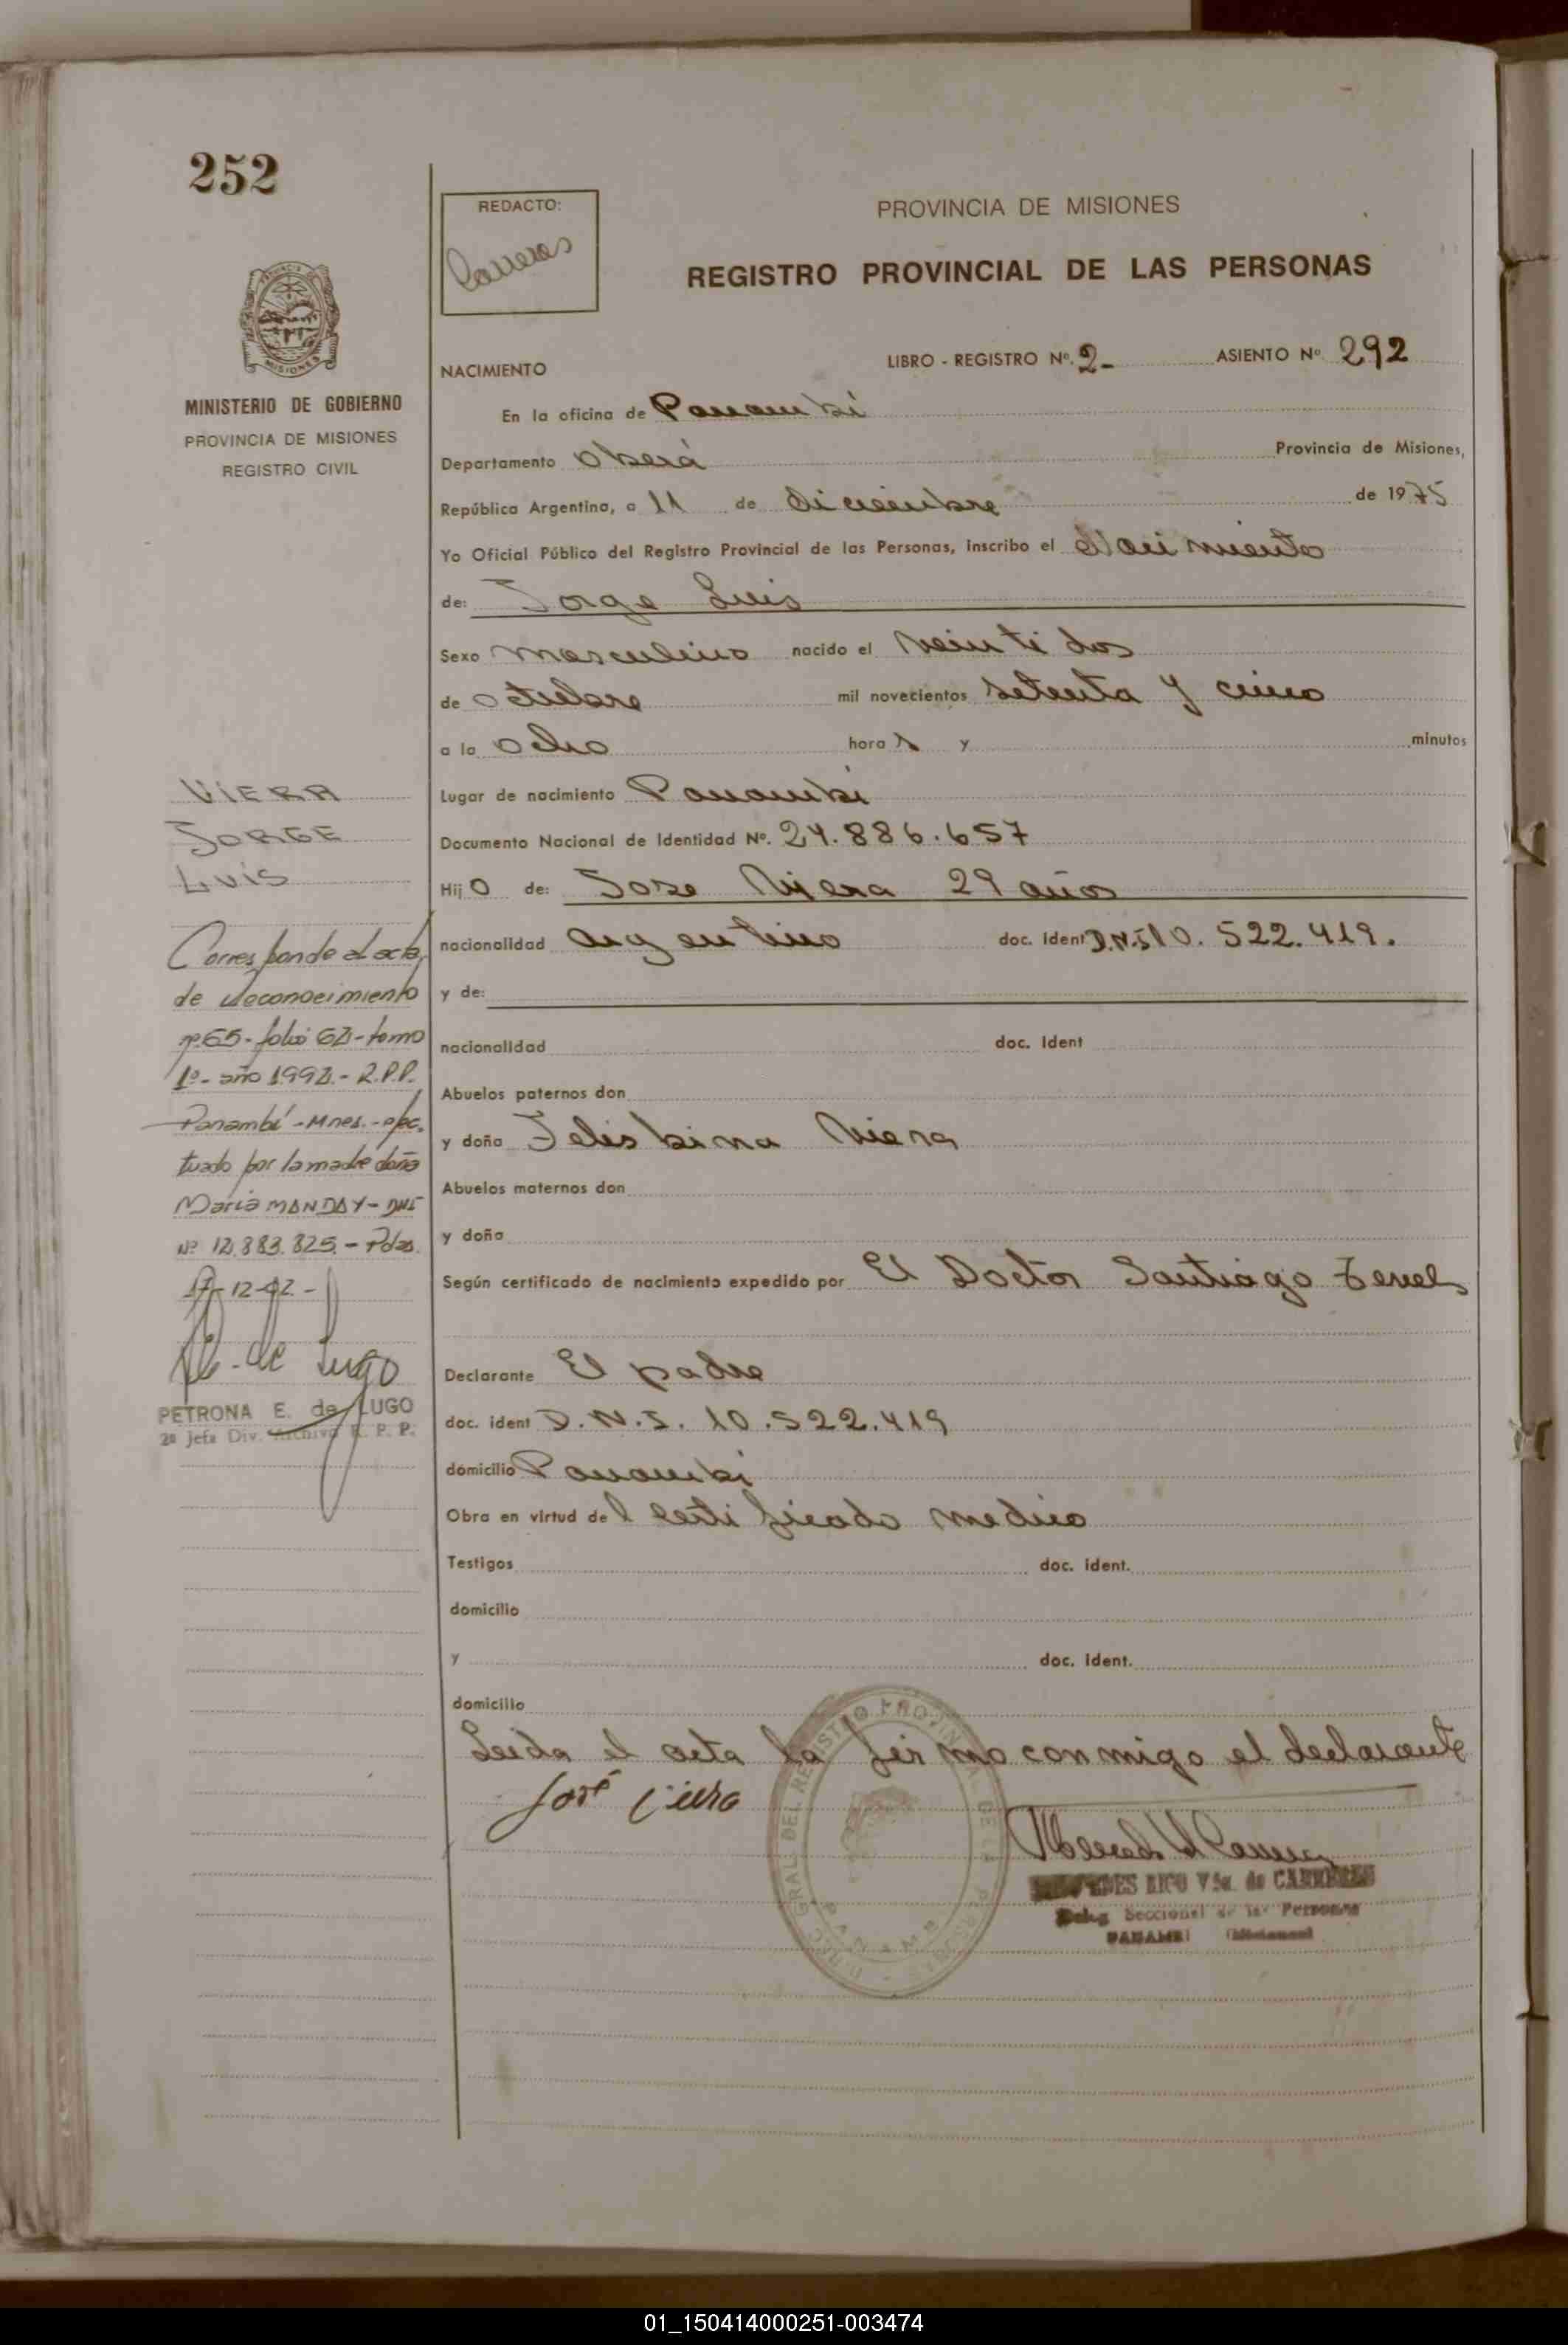 252
REDACTO:
Carreras
PROVINCIA DE MISIONES
REGISTRO PROVINCIAL DE LAS PERSONAS
MISIONES
MINISTERIO DE GOBIERNO
PROVINCIA DE MISIONES
REGISTRO CIVIL
NACIMIENTO
LIBRO - REGISTRO Nº. 2- ASIENTO Nº 292
En la oficina de Panambí
Departamento Oberá Provincia de Misiones,
República Argentina, a 11 de diciembre de 1975
Yo Oficial Público del Registro Provincial de las Personas, inscribo el Nacimiento
de: Jorge Luis
Sexo Masculino nacido el Veintidos
de Octubre mil novecientos Setenta y cinco
a la Ocho hora s y minutos
Lugar de nacimiento Panambi
Documento Nacional de Identidad Nº. 24.886.657
Hij O de: Jose Viera 29 años
nacionalidad Argentino doc. ident D.N.I 10.522.419.
y de:
nacionalidad doc. Ident
Abuelos paternos don
y doña Felisbina Viera
Abuelos maternos don
y doña
Según certificado de nacimiento expedido por El Doctor Santiago
Declarante El padre
doc. ident D.N.I. 10.522.419
domicilio Panambi
Obra en virtud de l certificado medico
Testigos doc. ident.
domicilio
y doc. ident.
domicilio
Leida el acta la firma conmigo el declarante
José Viera
RICO Vda. de CARRERAS
Deleg Seccional de las Personas
PANAMBI (Misiones)
VIERA
JORGE
LUIS
Corresponde al acta
de reconocimiento
nº 65- folio 62- tomo
1º- año 1992.- R.P.P.
Panambí - Mnes. - efec.
tuado por la madre doña
Maria MANDAY - DNI
Nº 12.883.825.- Pdas.
17-12-92.-
de Lugo
PETRONA E. de LUGO
2º Jefa Div. Archivo R. P. P.
01_150414000251-003474